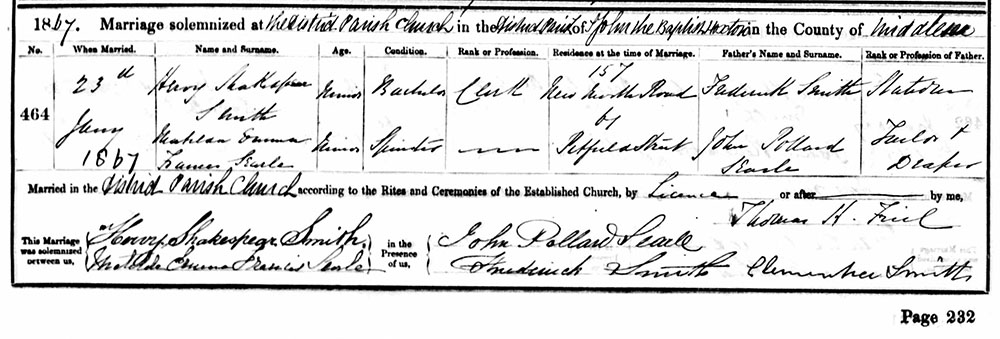 1867. Marriage solemnized at the District Parish Church in the District Parish of St John the Baptist Hoxton in the County of Middlesex
No. When Married. Name and Surname. Age. Condition. Rank or Profession. Residence at the time of Marriage. Father's Name and Surname. Rank or Profession of Father.
464 23rd Jany 1867 Henry Shakespear Smith Minor Bachelor Clerk 157 New North Road Frederick Smith
Matilda Emma Frances Searle Minor Spinster — 67 Pitfield Street John Pollard Searle Tailor & Draper
Married in the District Parish Church according to the Rites and Ceremonies of the Established Church, by Licence or after — by me,
Thomas H.
This Marriage was solemnized between us, Henry Shakespear Smith in the Presence of us, John Pollard Searle
Matilda Emma Frances Searle Frederick Smith Clementina Smith
Page 232